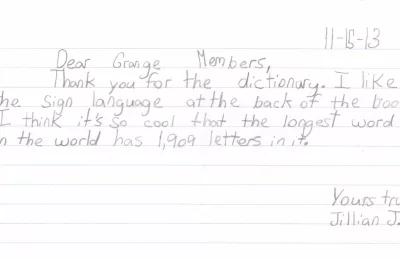 11-15-13
Dear Grange Members,
Thank you for the dictionary. I like
he sign language at the back of the boo
I think it's so cool that the longest word
n the world has 1,909 letters in it.
Yours tru
Jillian J.